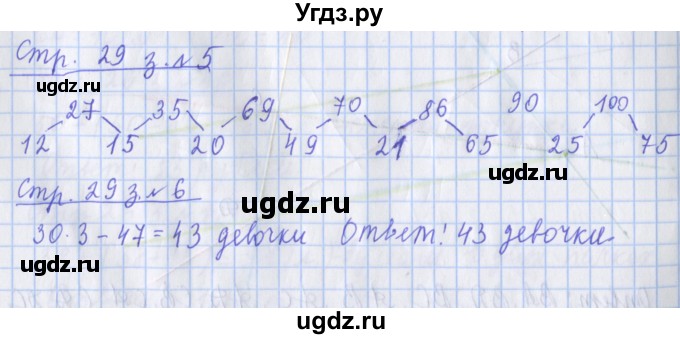 Угдз.ру
Стр. 29 з. №5
27 35 69 70 86 90 100
12 15 20 49 21 65 25 75
Стр. 29 з. № 6
30·3-47=43 девочки Ответ! 43 девочки.
ugdz.ru
ugdz.ru
ugdz.ru
ugdz.ru
ugdz.ru
ugdz.ru